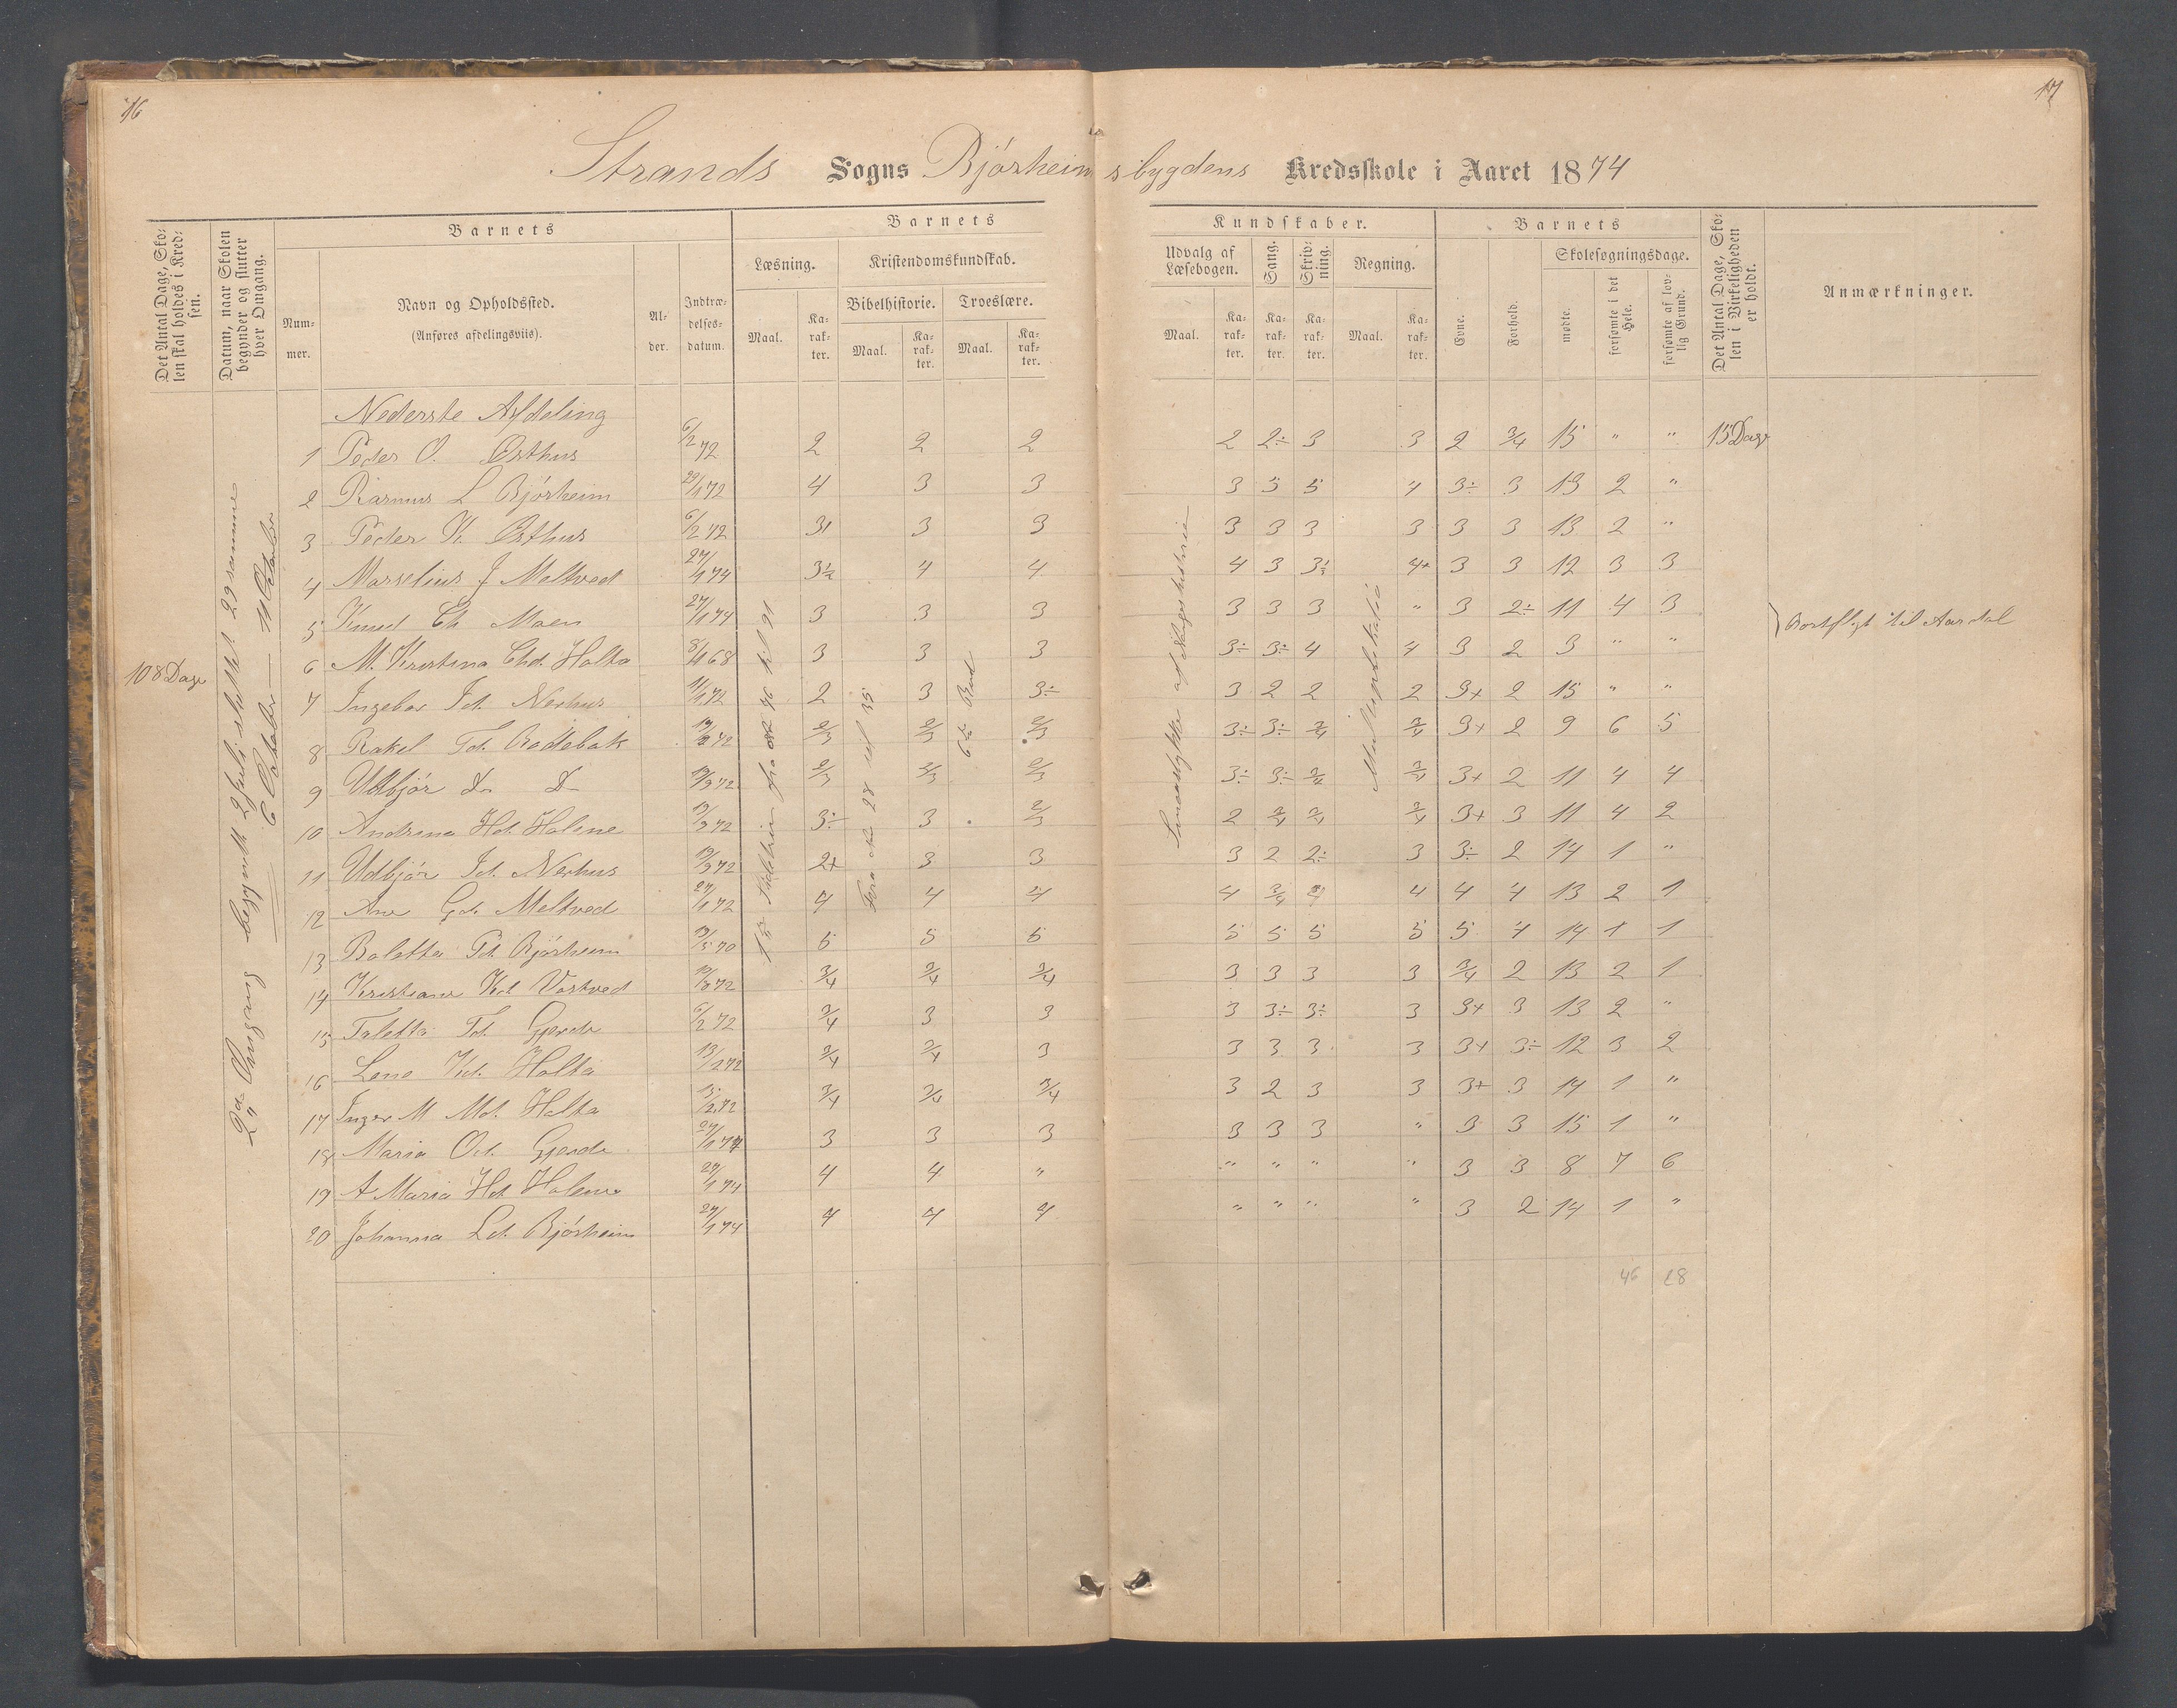 16
17
Strands Sogns Bjórheimsbygdens Kredsskole i Aaret 1874
Det Antal Dage, Skolen skal holdes i Kredsen.
Datum, naar Skolen begynder og slutter hver Omgang.
Barnets
Nummer.
Navn og Opholdssted.
(Anføres afdelingsviis).
Alder.
Indtrædelsesdatum.
Barnets Kundskaber.
Læsning.
Maal.
Karakter.
Kristendomskundskab.
Bibelhistorie.
Maal.
Karakter.
Troeslære.
Maal.
Karakter.
Udvalg af Læsebogen.
Maal.
Karakter.
Sang.
Karakter.
Skrivning.
Karakter.
Regning.
Maal.
Karakter.
Barnets
Evne.
Forhold.
Skolesøgningsdage.
mødte.
forsømte i det Hele.
forsømte af lovlig Grund.
Det Antal Dage, Skolen i Virkeligheden er holdt.
Anmærkninger.
108 Dage
2den Omgang begyndt 2 Juli sluttet 29 samme
6 October — 11 October
Nederste Afdeling
1 Peder O. Østhus 6/2 72 2 2 2 2 2÷ 3 3 2 3/4 15 " " 15 Dage
2 Rasmus L Bjórheim 29/1 72 4 3 3 3 3 5 4 3÷ 3 13 2 "
3 Peder K. Østhus 6/2 72 3 3 3 3 3 3 3 3 3 13 2 "
4 Marselius J Meltved 27/1 74 3½ 4 4 4 3 3½ 4+ 3 3 12 3 3
5 Knud Ch Moen 27/1 74 3 3 3 3 3 3 " 3 2÷ 11 4 3
6 M. Kristina Chd. Holta 8/1 68 3 3 3 3÷ 3÷ 4 4 3 2 3 " " Bortflyt til Aardal
7 Ingebor Td. Nerhus 11/1 72 2 3 3÷ 3 2 2 2 3+ 2 15 " "
8 Rakel Td. Bodebak 19/2 72 2/3 2/3 2/3 3÷ 3÷ 3/4 3/4 3+ 2 9 6 5
9 Udbjór D- D- 19/3 72 2/3 2/3 2/3 3÷ 3÷ 3/4 3/4 3+ 2 11 4 4
10 Andrena Hd. Holene 19/3 72 3÷ 3 2/3 2 3/4 3/4 3/4 3+ 3 11 4 2
11 Udbjór Td. Nerhus 19/3 72 2+ 3 3 3 2 2÷ 3 3÷ 2 14 1 "
12 Ane Gd. Meltved 27/1 72 4 4 4 4 3/4 4 4 4 13 2 1
13 Boletta Pd. Bjórheim 19/5 70 5 5 5 5 5 5 5 5 4 14 1 1
14 Kristiane Kd Vostved 19/3 72 3/4 3/4 3/4 3 3 3 3 3/4 2 13 2 1
15 Taletta Td. Gjerde 6/2 72 3/4 3 3 3 3÷ 3÷ 3 3+ 3 13 2 "
16 Lene Kd. Holta 13/2 72 3/4 3/4 3 3 3 3 3 3+ 3÷ 12 3 2
17 Inger M Md. Holta 13/2 72 3/4 3/4 3/4 3 2 3 3 3+ 3 14 1 "
18 Maria Od. Gjerde 27/1 74 3 3 3 3 3 3 " 3 3 15 1 "
19 A Maria Hd. Holene 29/1 74 4 4 " " " " " 3 3 8 7 6
20 Johanna Ld. Bjórheim 27/1 74 4 4 4 " " " " 3 2 14 1 "
46 28
fra 76 til 91
Fra 28 til 35
6te Bud
Smaastykke af Norgeshistorie
Multiplikatió